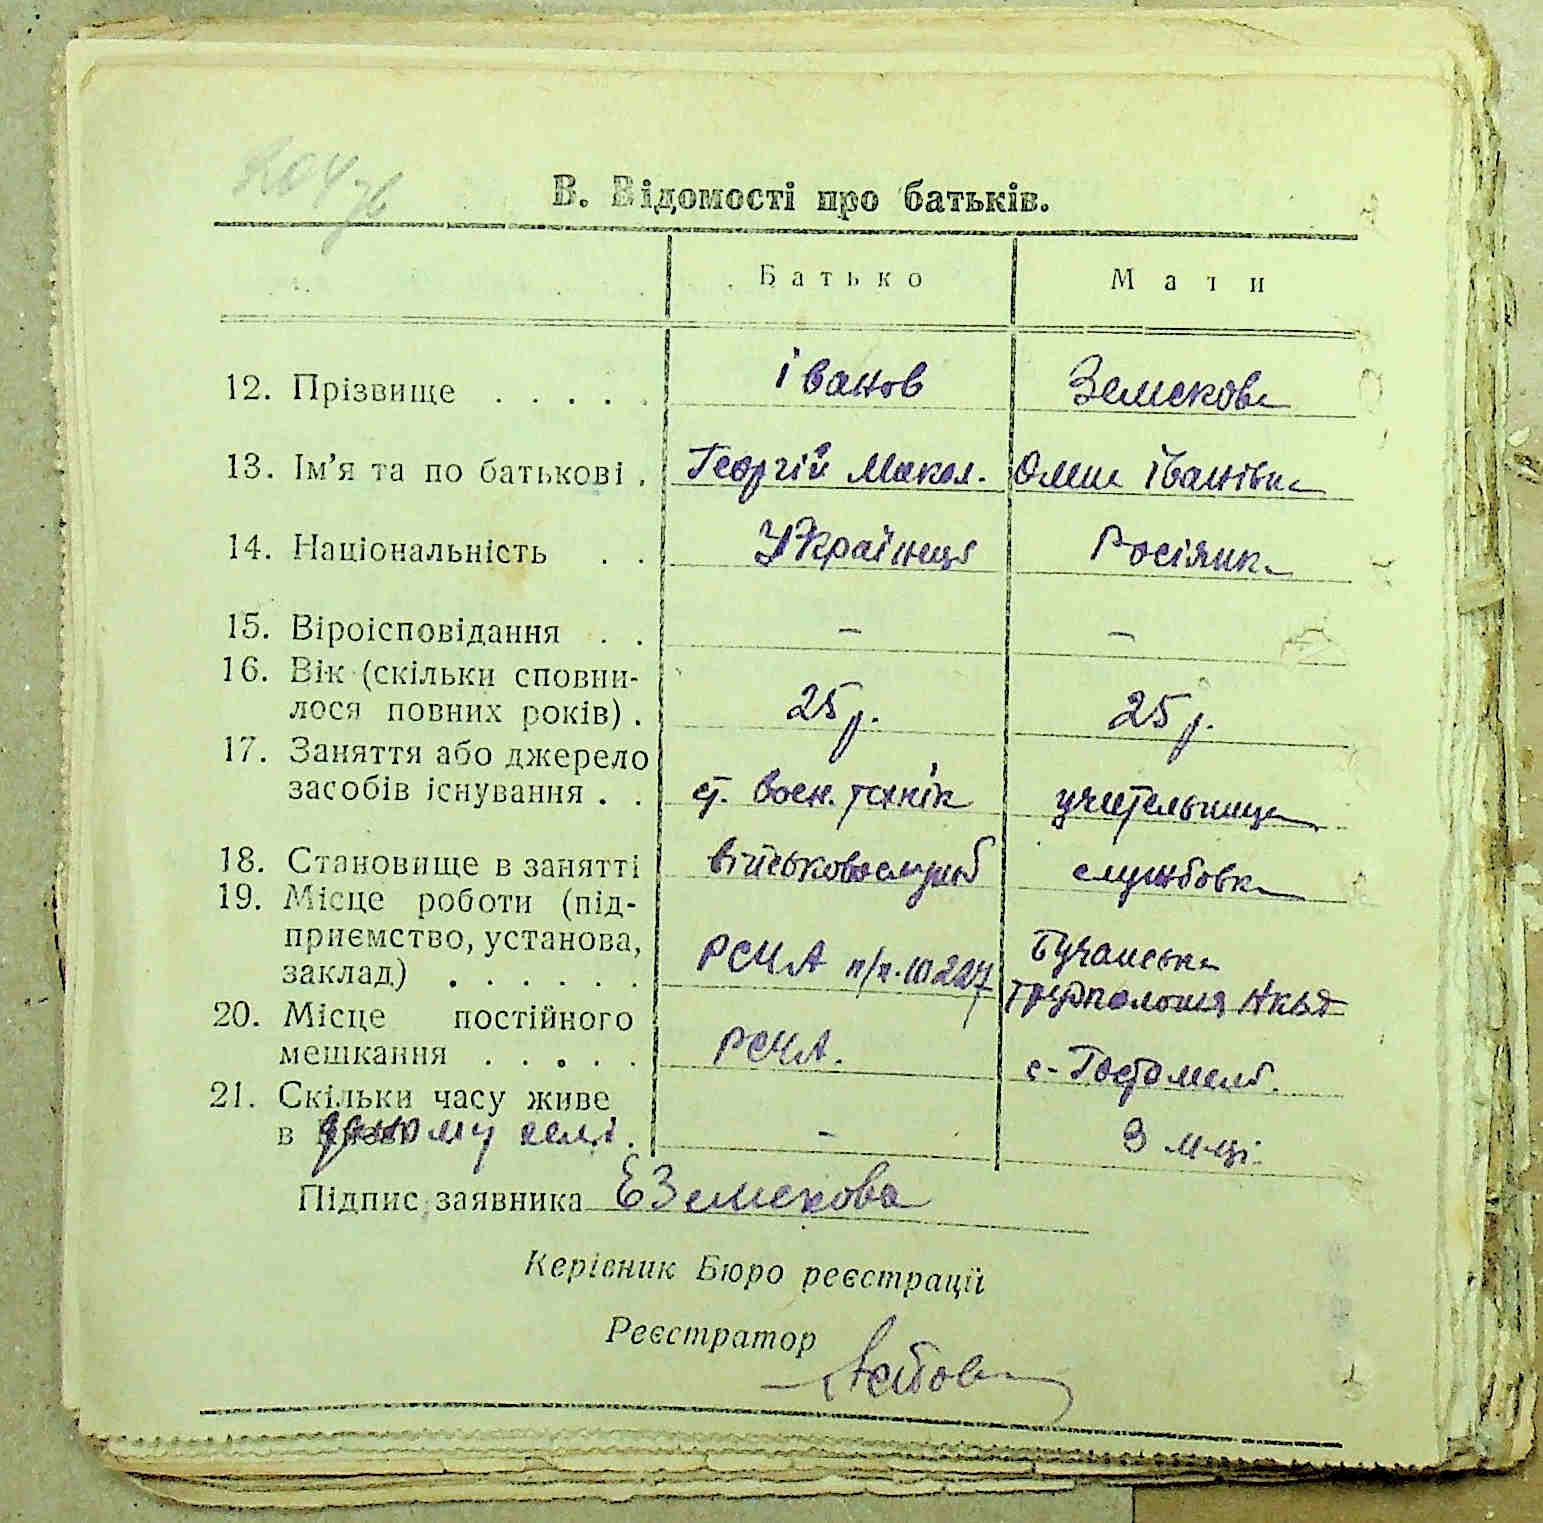 В. Відомості про батьків.
Батько Мати
12. Прізвище . . . . . Іванов Земскова
13. Ім'я та по батькові . Георгій Микол. Олена Іванівна
14. Національність . . Українець Росіянка
15. Віроісповідання . . – –
16. Вік (скільки сповни-
лося повних років) . 25 р. 25 р.
17. Заняття або джерело
засобів існування . . ст. воен. технік учительниця
18. Становище в занятті військовослужб службовка
19. Місце роботи (під-
приємство, установа, Бучанська
заклад) . . . . . . РСЧА п/я. трудколонія НКВД
20. Місце постійного
мешкання . . . . . РСЧА. с. Гостомель.
21. Скільки часу живе
в даному селі . – 3 м-ці.
Підпис заявника ЕЗемскова
Керівник Бюро реєстрації
Реєстратор